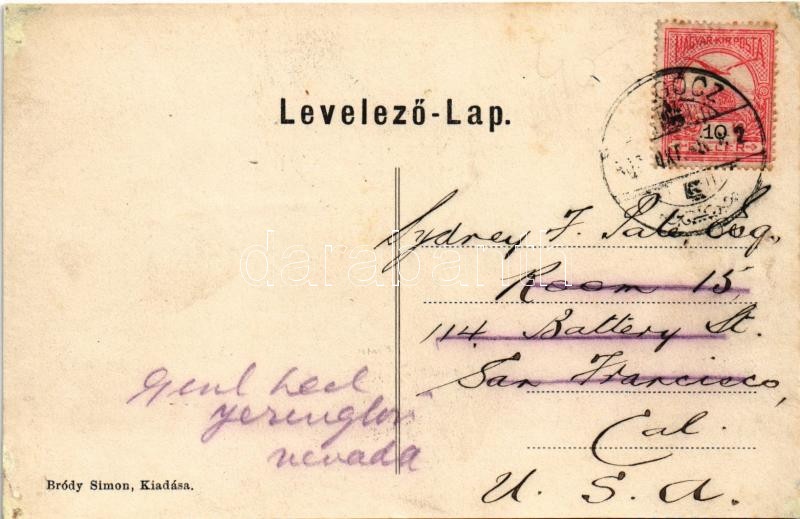 MAGYAR KIR. POSTA
GÓCZ
10
Levelező-Lap.
Sydney F. Pate, Esq.,
Room 15,
114 Battery St.
San Francisco,
Cal.
U. S. A.
Genl Del
Yerington
nevada
Bródy Simon, Kiadása.
darabanth